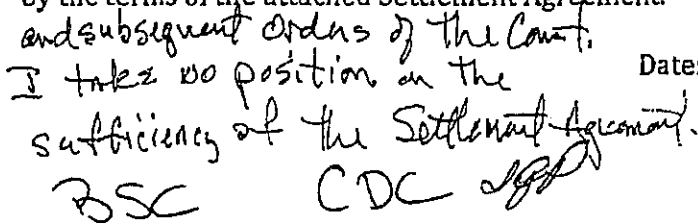 by the terms of the attached Settlement Agreement
and subsequent Orders of the Court.
I take no position on the
Date:
sufficiency of the Settlement Agreement.
BSC CDC